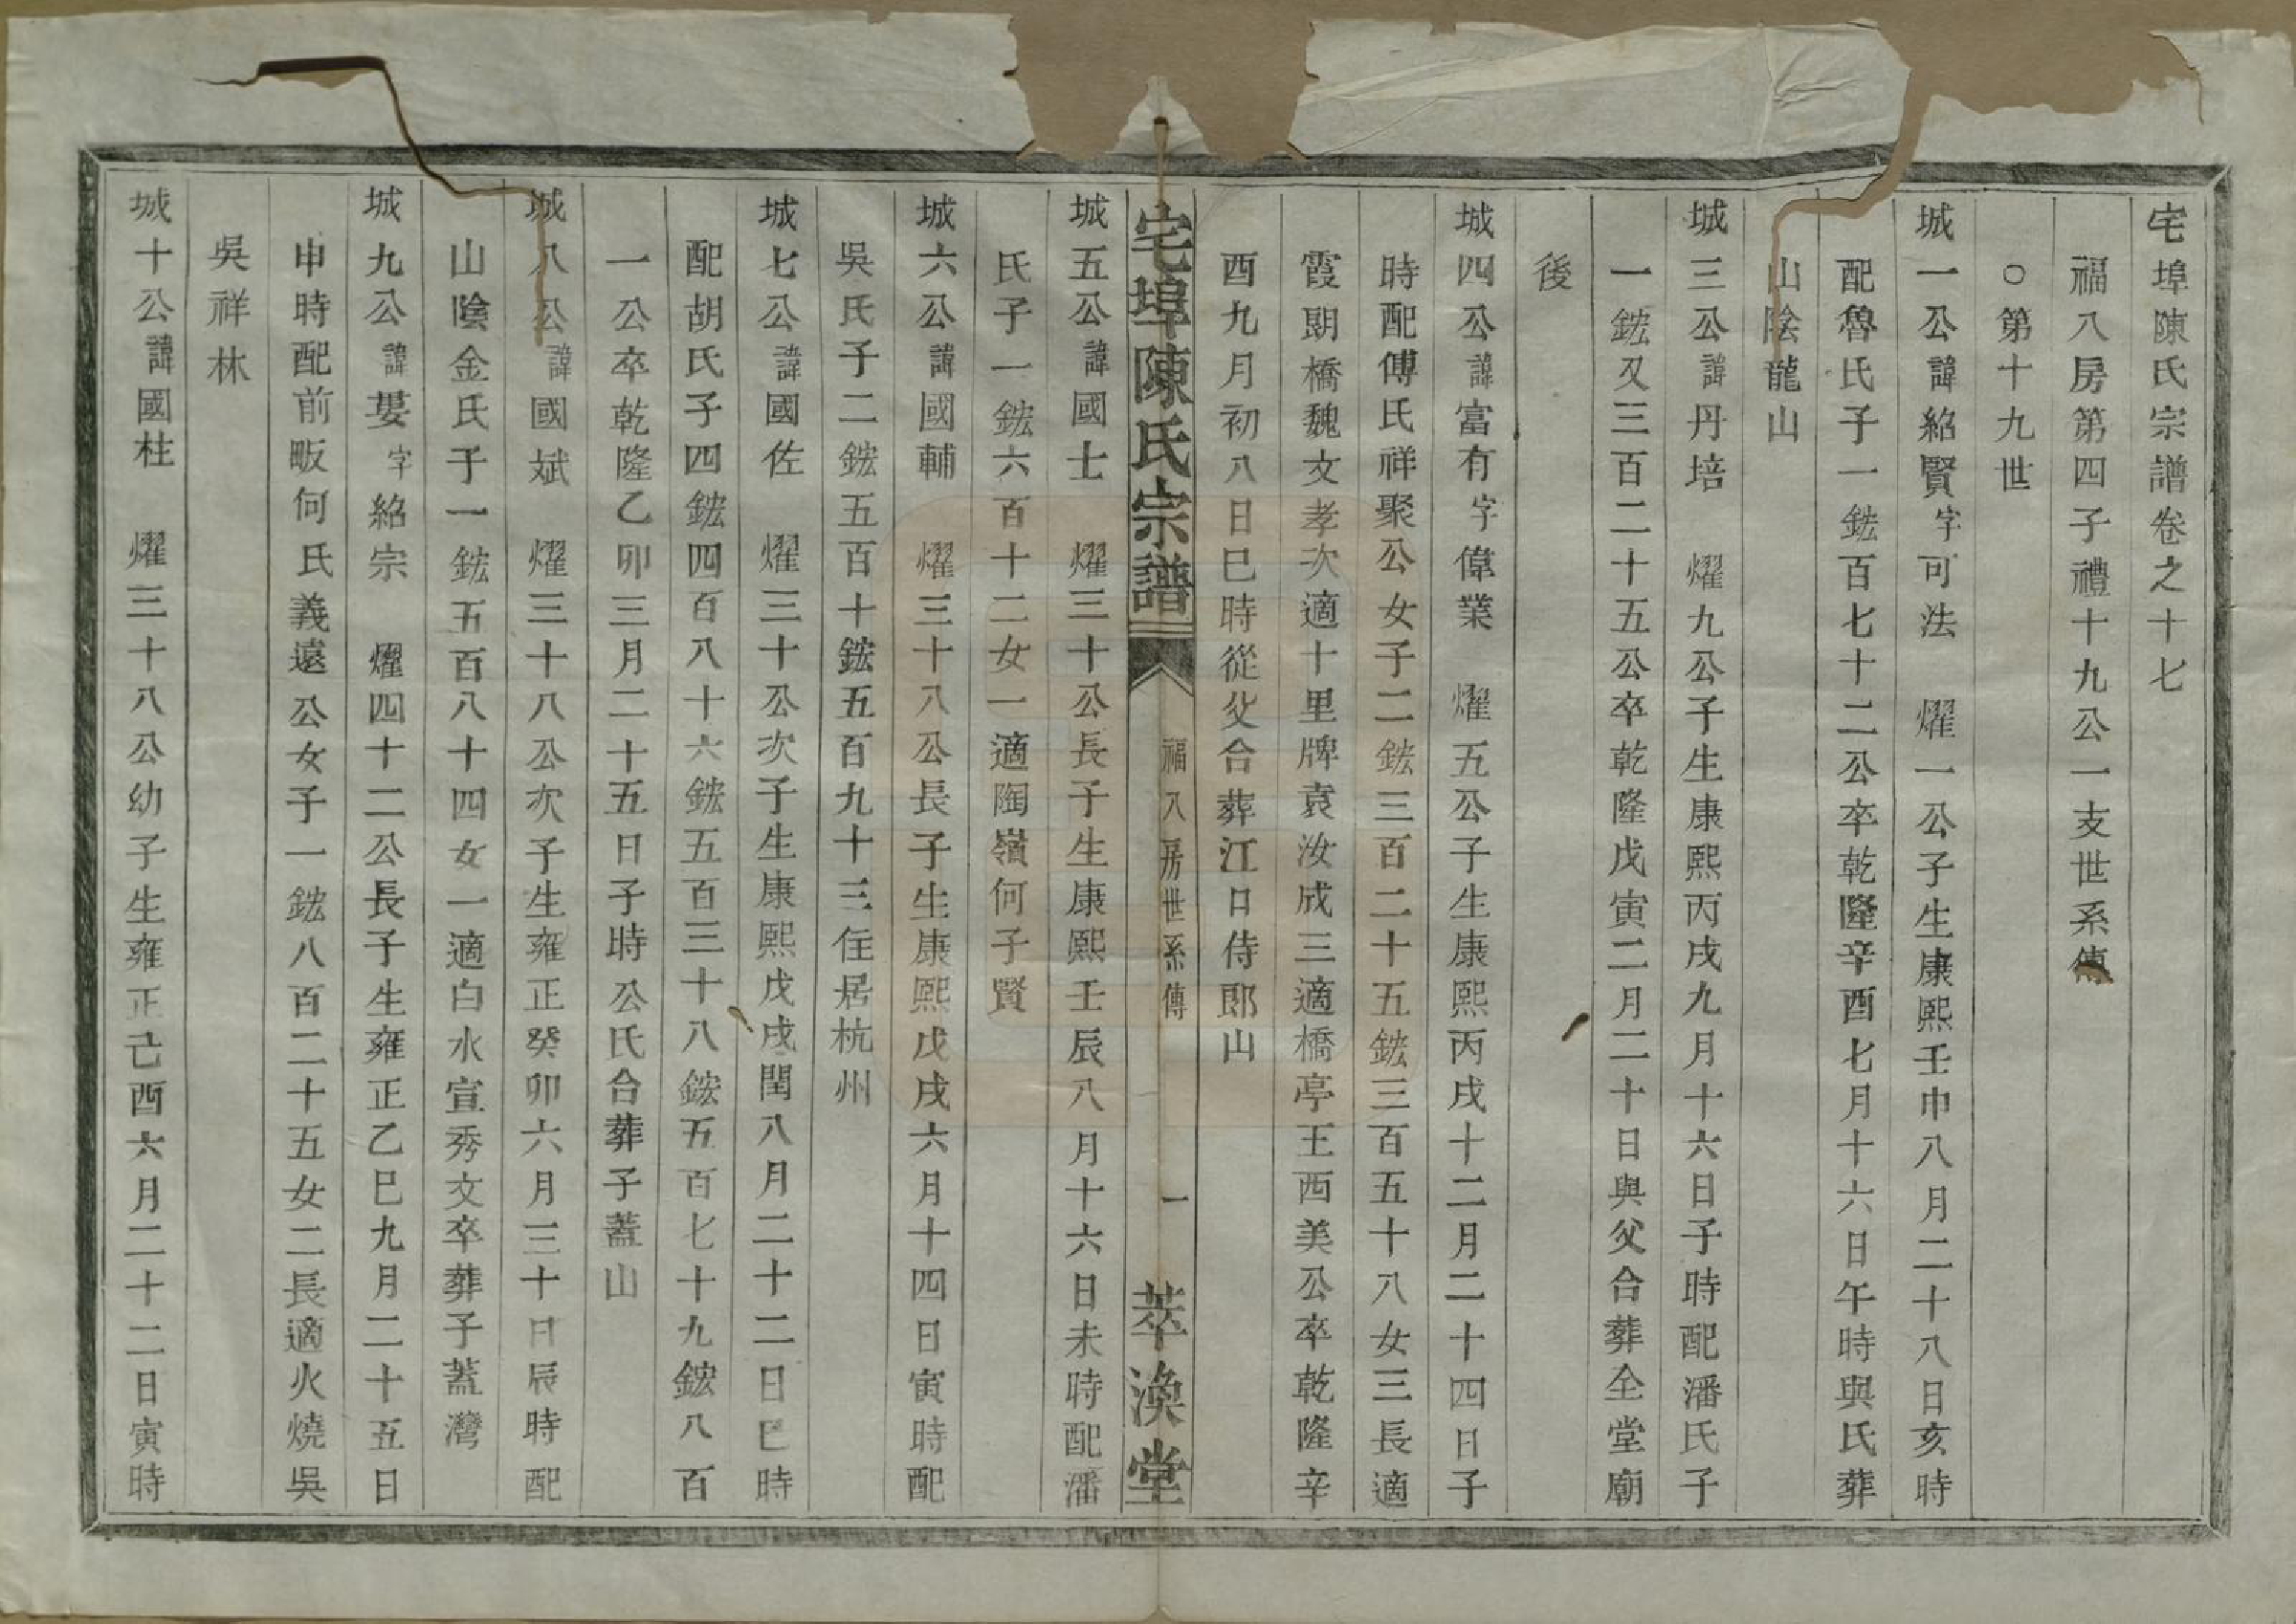 宅埠陳氏宗譜卷之十七
福八房第四子禮十九公一支世系傳
○第十九世
城一公諱紹賢字可法　燿一公子生康熙壬申八月二十八日亥時
配魯氏子一鋐百七十二公卒乾隆辛酉七月十六日午時與氏葬
山陰龍山
城三公諱丹培　燿九公子生康熙丙戌九月十六日子時配潘氏子
一鋐又三百二十五公卒乾隆戊寅二月二十日與父合葬全堂廟
後
城四公諱富有字偉業　燿五公子生康熙丙戌十二月二十四日子
時配傅氏祥聚公女子二鋐三百二十五鋐三百五十八女三長適
霞朗橋魏文孝次適十里牌袁汝成三適橋亭王西美公卒乾隆辛
酉九月初八日巳時從父合葬江口侍郎山
宅埠陳氏宗譜　福八房世系傳　一　萃渙堂
城五公諱國士　燿三十公長子生康熙壬辰八月十六日未時配潘
氏子一鋐六百十二女一適陶嶺何子賢
城六公諱國輔　燿三十八公長子生康熙戊戌六月十四日寅時配
吳氏子二鋐五百十鋐五百九十三住居杭州
城七公諱國佐　燿三十公次子生康熙戊戌閏八月二十二日巳時
配胡氏子四鋐四百八十六鋐五百三十八鋐五百七十九鋐八百
一公卒乾隆乙卯三月二十五日子時公氏合葬子蓋山
城八公諱國斌　燿三十八公次子生雍正癸卯六月三十日辰時配
山陰金氏子一鋐五百八十四女一適白水宣秀文卒葬子蓋灣
城九公諱娶字紹宗　燿四十二公長子生雍正乙巳九月二十五日
申時配前畈何氏義遠公女子一鋐八百二十五女二長適火燒吳
吳祥林
城十公諱國柱　燿三十八公幼子生雍正己酉六月二十二日寅時